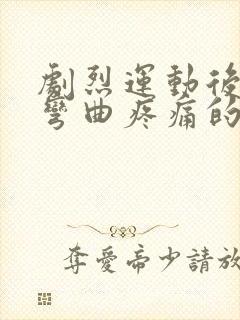 劇烈運動後
彎曲疼痛的
奪愛帝少請放